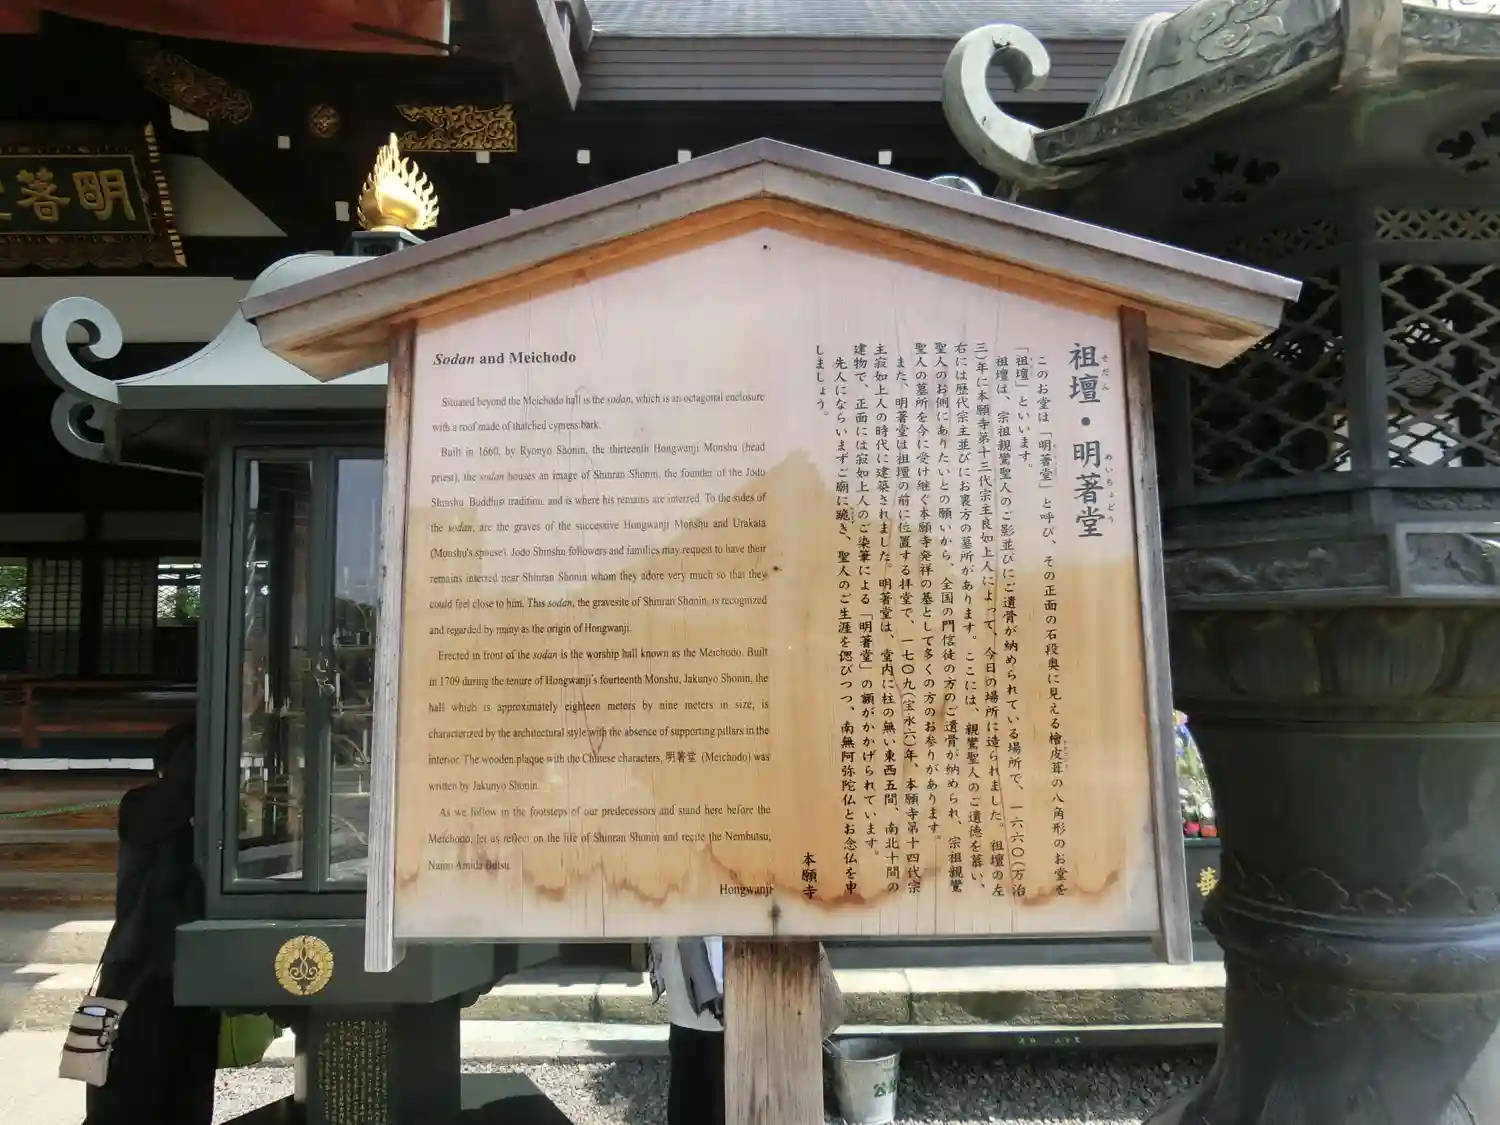 明著
Sodan and Meichodo
Situated beyond the Meichodo hall is the sodan, which is an octagonal enclosure
with a roof made of thatched cypress bark.
Built in 1660, by Ryonyo Shonin, the thirteenth Hongwanji Monshu (head
priest), the sodan houses an image of Shinran Shonin, the founder of the Jodo
Shinshu Buddhist tradition, and is where his remains are interred. To the sides of
the sodan, are the graves of the successive Hongwanji Monshu and Urakata
(Monshu's spouse). Jodo Shinshu followers and families may request to have their
remains interred near Shinran Shonin whom they adore very much so that they
could feel close to him. This sodan, the gravesite of Shinran Shonin, is recognized
and regarded by many as the origin of Hongwanji.
Erected in front of the sodan is the worship hall known as the Meichodo. Built
in 1709 during the tenure of Hongwanji's fourteenth Monshu, Jakunyo Shonin, the
hall which is approximately eighteen meters by nine meters in size, is
characterized by the architectural style with the absence of supporting pillars in the
interior. The wooden plaque with the Chinese characters, 明著堂 (Meichodo) was
written by Jakunyo Shonin.
As we follow in the footsteps of our predecessors and stand here before the
Meichodo, let us reflect on the life of Shinran Shonin and recite the Nembutsu,
Namo Amida Butsu.
Hongwanji
祖壇・明著堂
そだん めいちょどう
このお堂は「明著堂」と呼び、その正面の石段奥に見える檜皮葺の八角形のお堂を
「祖壇」といいます。
祖壇は、宗祖親鸞聖人のご影並びにご遺骨が納められている場所で、一六六〇(万治
三)年に本願寺第十三代宗主良如上人によって、今日の場所に造られました。祖壇の左
右には歴代宗主並びにお裏方の墓所があります。ここには、親鸞聖人のご遺徳を慕い、
聖人のお側にありたいとの願いから、全国の門信徒の方のご遺骨が納められ、宗祖親鸞
聖人の墓所を今に受け継ぐ本願寺発祥の基として多くの方のお参りがあります。
また、明著堂は祖壇の前に位置する拝堂で、一七〇九(宝永六)年、本願寺第十四代宗
主寂如上人の時代に建築されました。明著堂は、堂内に柱の無い東西五間、南北十間の
建物で、正面には寂如上人のご染筆による「明著堂」の額がかかげられています。
先人にならいまずご廟に跪き、聖人のご生涯を偲びつつ、南無阿弥陀仏とお念仏を申
しましょう。
本願寺
華